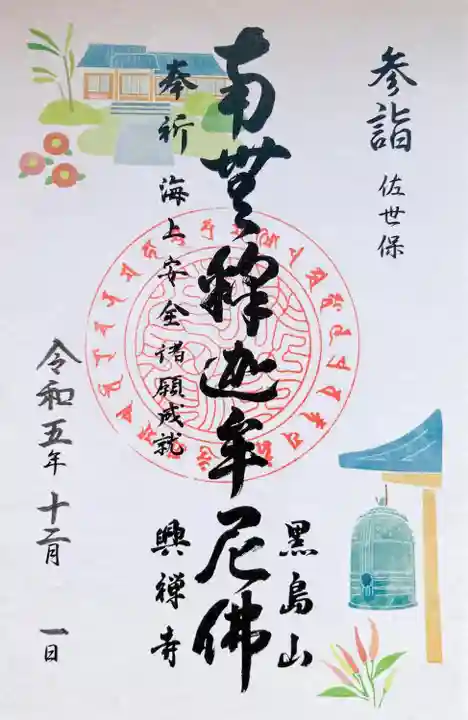 参詣 佐世保
南無釋迦牟尼佛
奉祈 海上安全諸願成就
黒島山
興禅寺
令和五年 十二月 一日